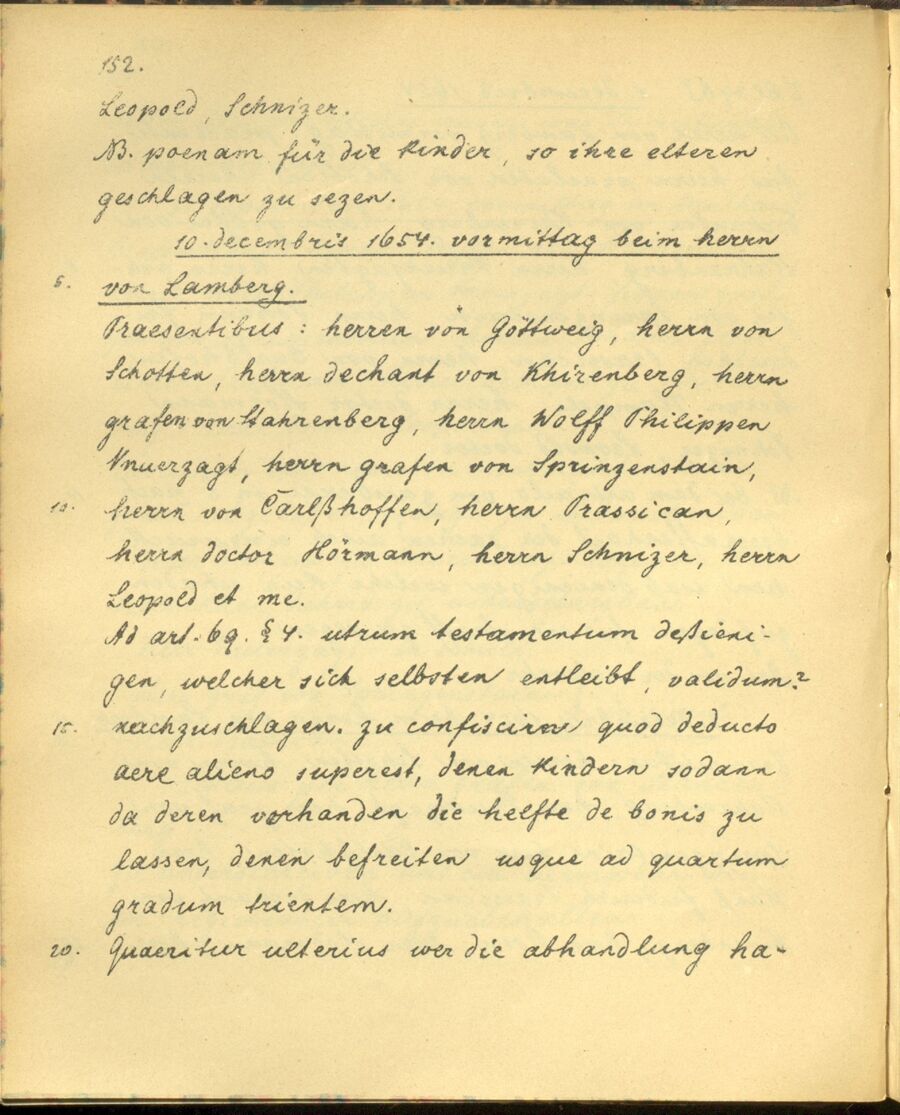 152.
Leopold, Schnizer.
NB. poenam für die kinder, so ihre elteren
geschlagen zu sezen.
10. decembris 1654. vormittag beim herrn
5. von Lamberg.
Praesentibus: herren von Göttweig, herrn von
Schotten, herrn dechant von Khirenberg, herrn
grafen von Stahrenberg, herrn Wolff Philippen
Vnuerzagt, herrn grafen von Sprinzenstain,
10. herrn von Carlßhoffen, herrn Prassican,
herrn doctor Hörmann, herrn Schnizer, herrn
Leopold et me.
Ad art. 69. § 4. utrum testamentum deßieni-
gen, welcher sich selbsten entleibt, validum?
15. nachzuschlagen. zu confiscirn quod deducto
aere alieno superest, denen kindern sodann
da deren vorhanden die helfte de bonis zu
lassen, denen befreiten usque ad quartum
gradum trientem.
20. Quaeritur ulterius wer die abhandlung ha-